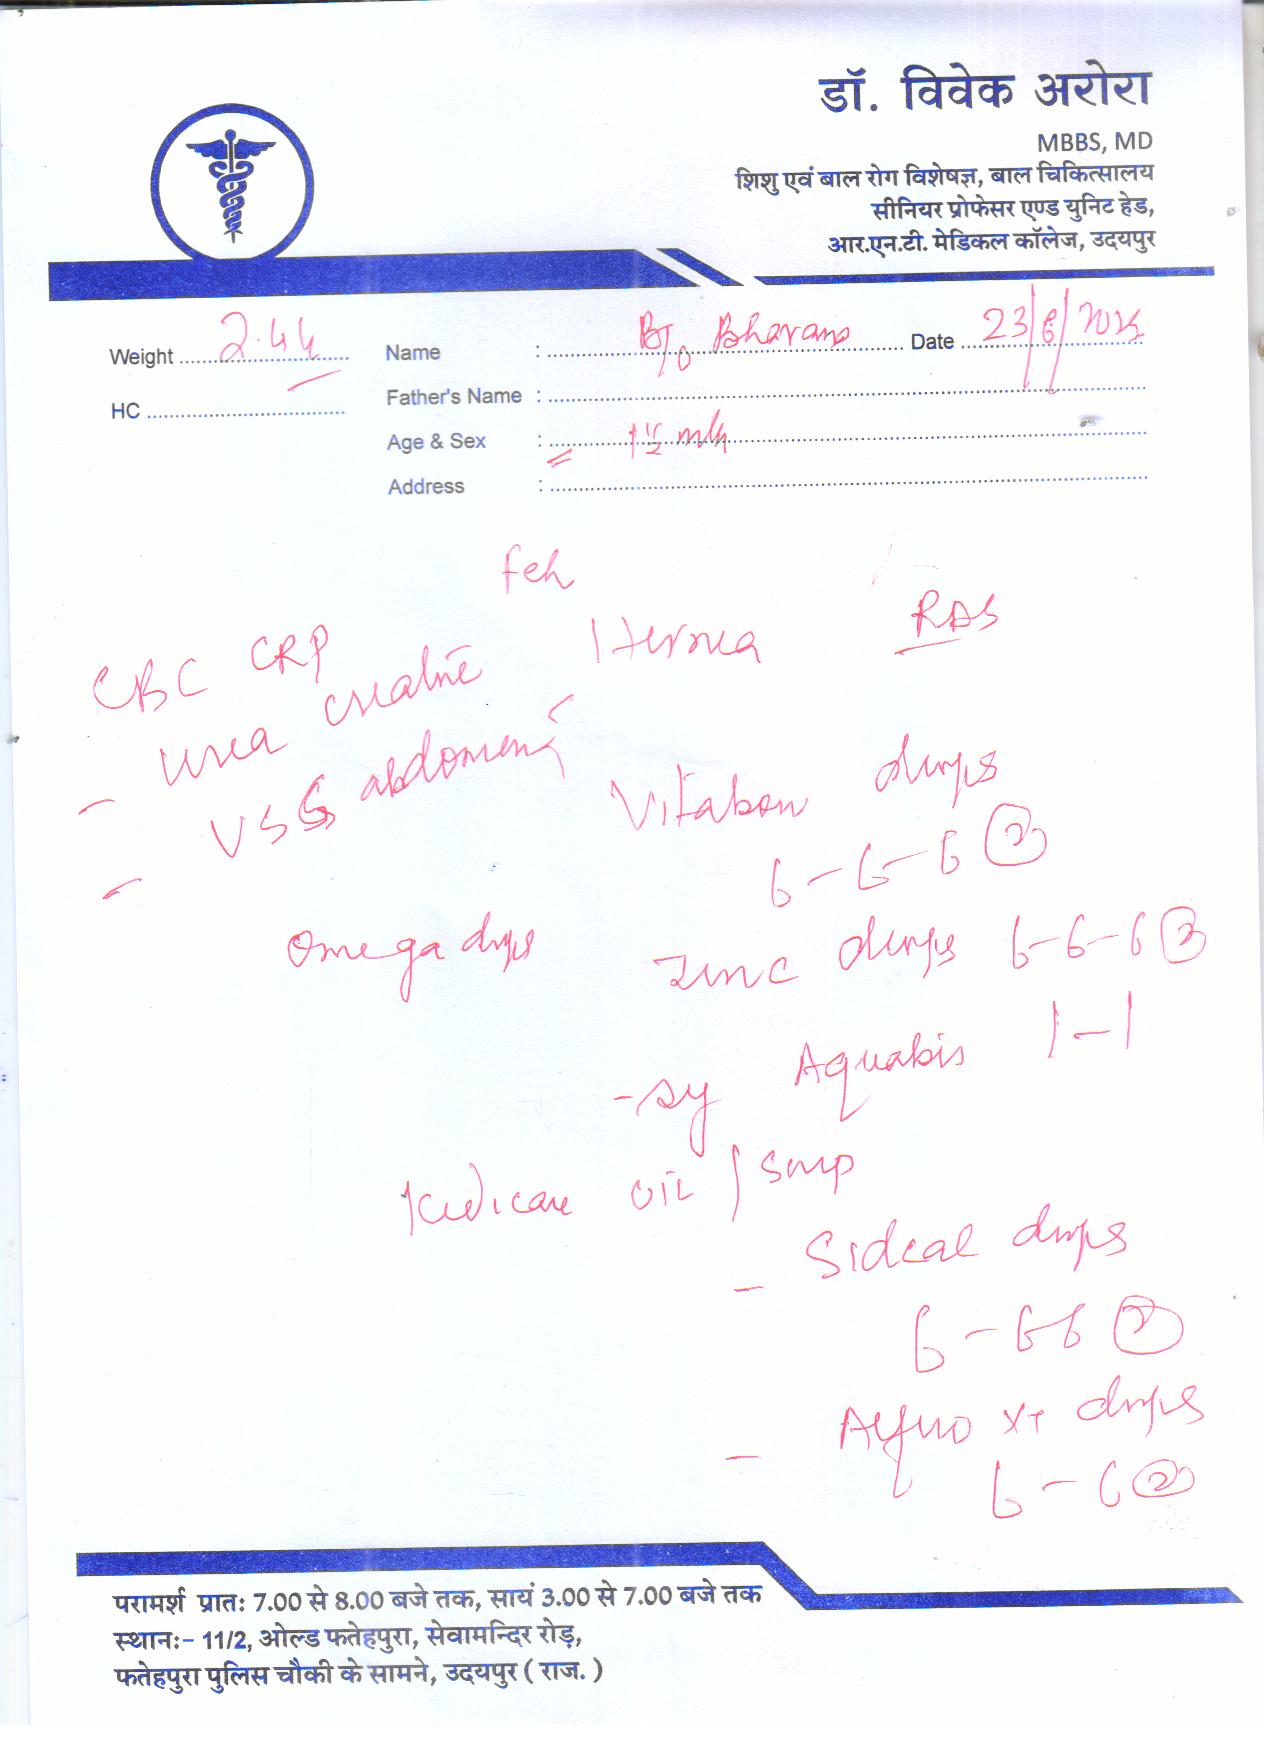 डॉ. विवेक अरोरा
MBBS, MD
शिशु एवं बाल रोग विशेषज्ञ, बाल चिकित्सालय
सीनियर प्रोफेसर एण्ड युनिट हेड,
आर.एन.टी. मेडिकल कॉलेज, उदयपुर
Weight 2.44 Name : B/o Date 23/6/2025
HC Father's Name :
Age & Sex : 1 1/2 mth
Address :
Hernia
CBC CRP
urea
USG abdomen
Vitabon drops
6-6-6 (2)
Omega drops
Zinc drops 6-6-6
- Sy Aquabis 1-1
oil / Soap
- Sidcal drops
6-6-6
- XT drops
6-6 (2)
परामर्श प्रातः 7.00 से 8.00 बजे तक, सायं 3.00 से 7.00 बजे तक
स्थानः- 11/2, ओल्ड फतेहपुरा, सेवामन्दिर रोड़,
फतेहपुरा पुलिस चौकी के सामने, उदयपुर ( राज. )